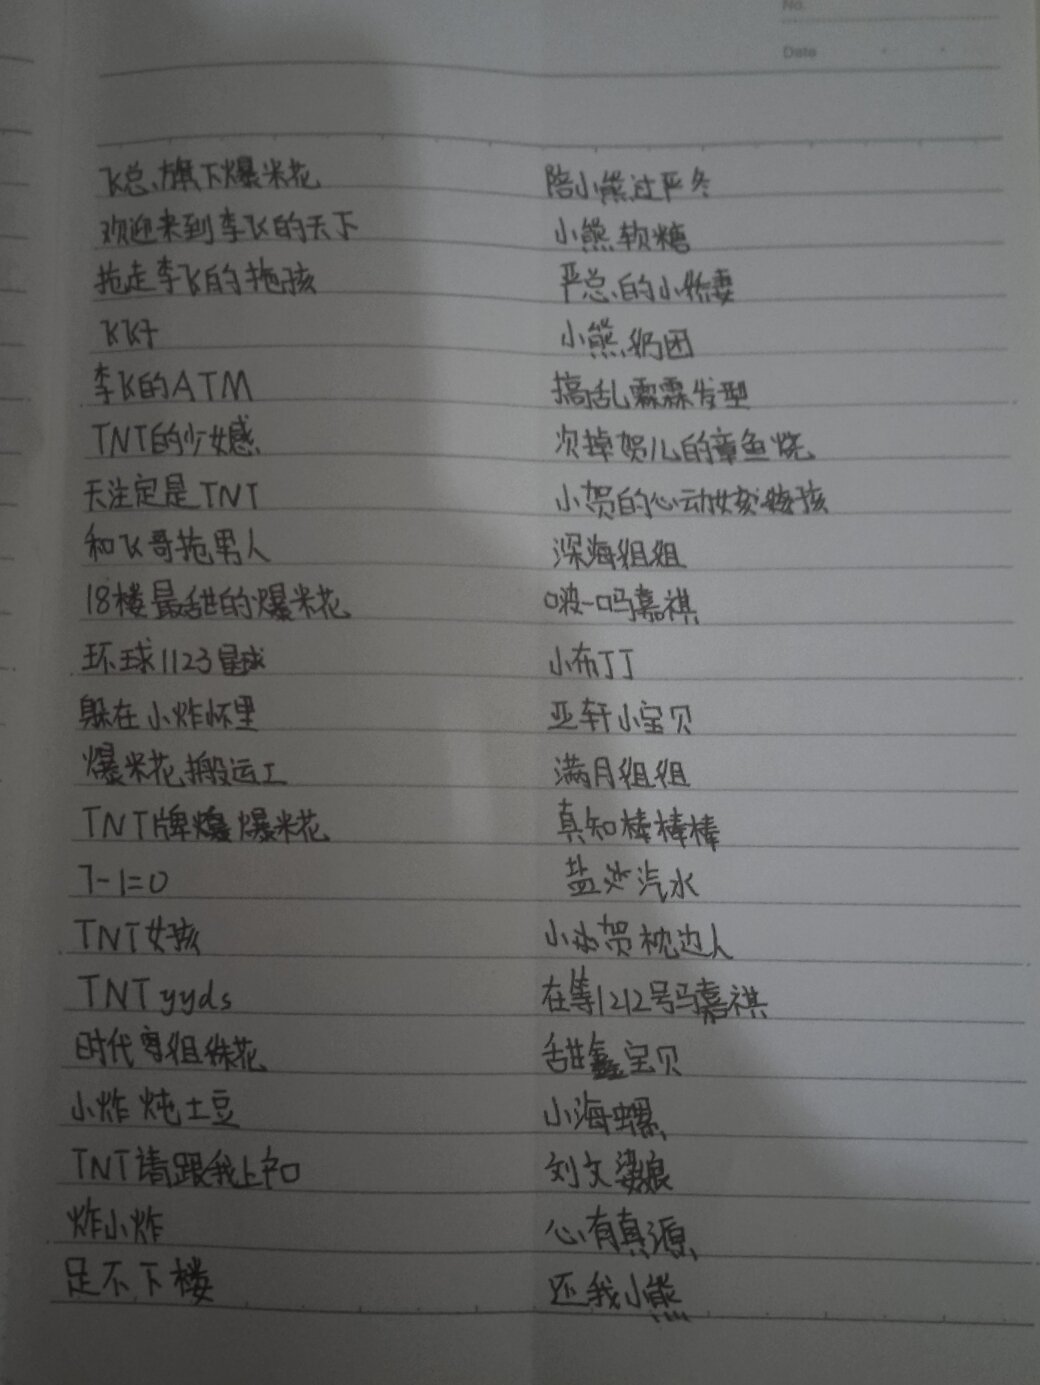 No.
Date
飞总旗下爆米花
欢迎来到李飞的天下
拖走李飞的拖孩
飞飞仔
李飞的ATM
TNT的少女感
天注定是TNT
和飞哥抢男人
18楼最甜的爆米花
环球1123星球
躲在小炸怀里
爆米花搬运工
TNT牌爆米花
7-1=0
TNT女孩
TNTyyds
时代粤组炸花
小炸炖土豆
TNT请跟我上
炸小炸
足不下楼
陪小熊过严冬
小熊软糖
严总的小娇妻
小熊奶团
搞乱霖霖发型
次掉贺儿的章鱼烧
小贺的心动女孩
深海姐姐
啵一口马嘉祺
小布丁丁
亚轩小宝贝
满月姐姐
真知棒棒棒
盐汽水
小贺枕边人
在等1212号马嘉祺
甜鑫宝贝
小海螺
刘文婆娘
心有真源
还我小熊